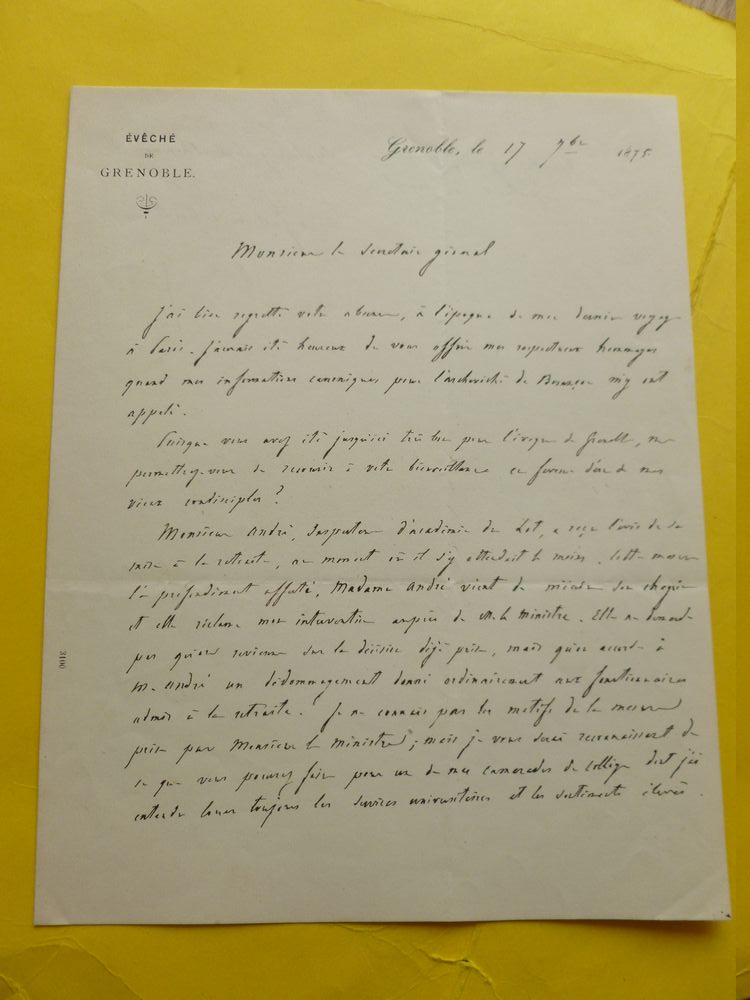 ÉVÊCHÉ
DE
GRENOBLE.
Grenoble, le 17 7bre 1875
Monsieur le Secrétaire général
J'ai bien regretté votre absence, à l'époque de mon dernier voyage
à Paris. J'aurais été heureux de vous offrir mes respectueux hommages
quand mes informations canoniques pour l'archevêché de Besançon m'y ont
appelé.
Puisque vous avez été jusqu'ici très bon pour l'évêque de Grenoble, me
permettez-vous de recourir à votre bienveillance en faveur d'un de mes
vieux condisciples ?
Monsieur André, Inspecteur d'académie du Lot, a reçu l'avis de sa
mise à la retraite, au moment où il s'y attendait le moins. Cette mesure
l'a profondément affecté, Madame André vient de m'écrire son chagrin
et elle réclame mon intervention auprès de M. le ministre. Elle ne demande
pas qu'on revienne sur la décision déjà prise, mais qu'on accorde à
M. André un dédommagement donné ordinairement aux fonctionnaires
admis à la retraite. Je ne connais pas les motifs de la mesure
prise par Monsieur le ministre ; mais je vous serai reconnaissant de
ce que vous pourrez faire pour un de mes camarades de collège dont j'ai
entendu louer toujours les services universitaires et les sentiments élevés.
3100